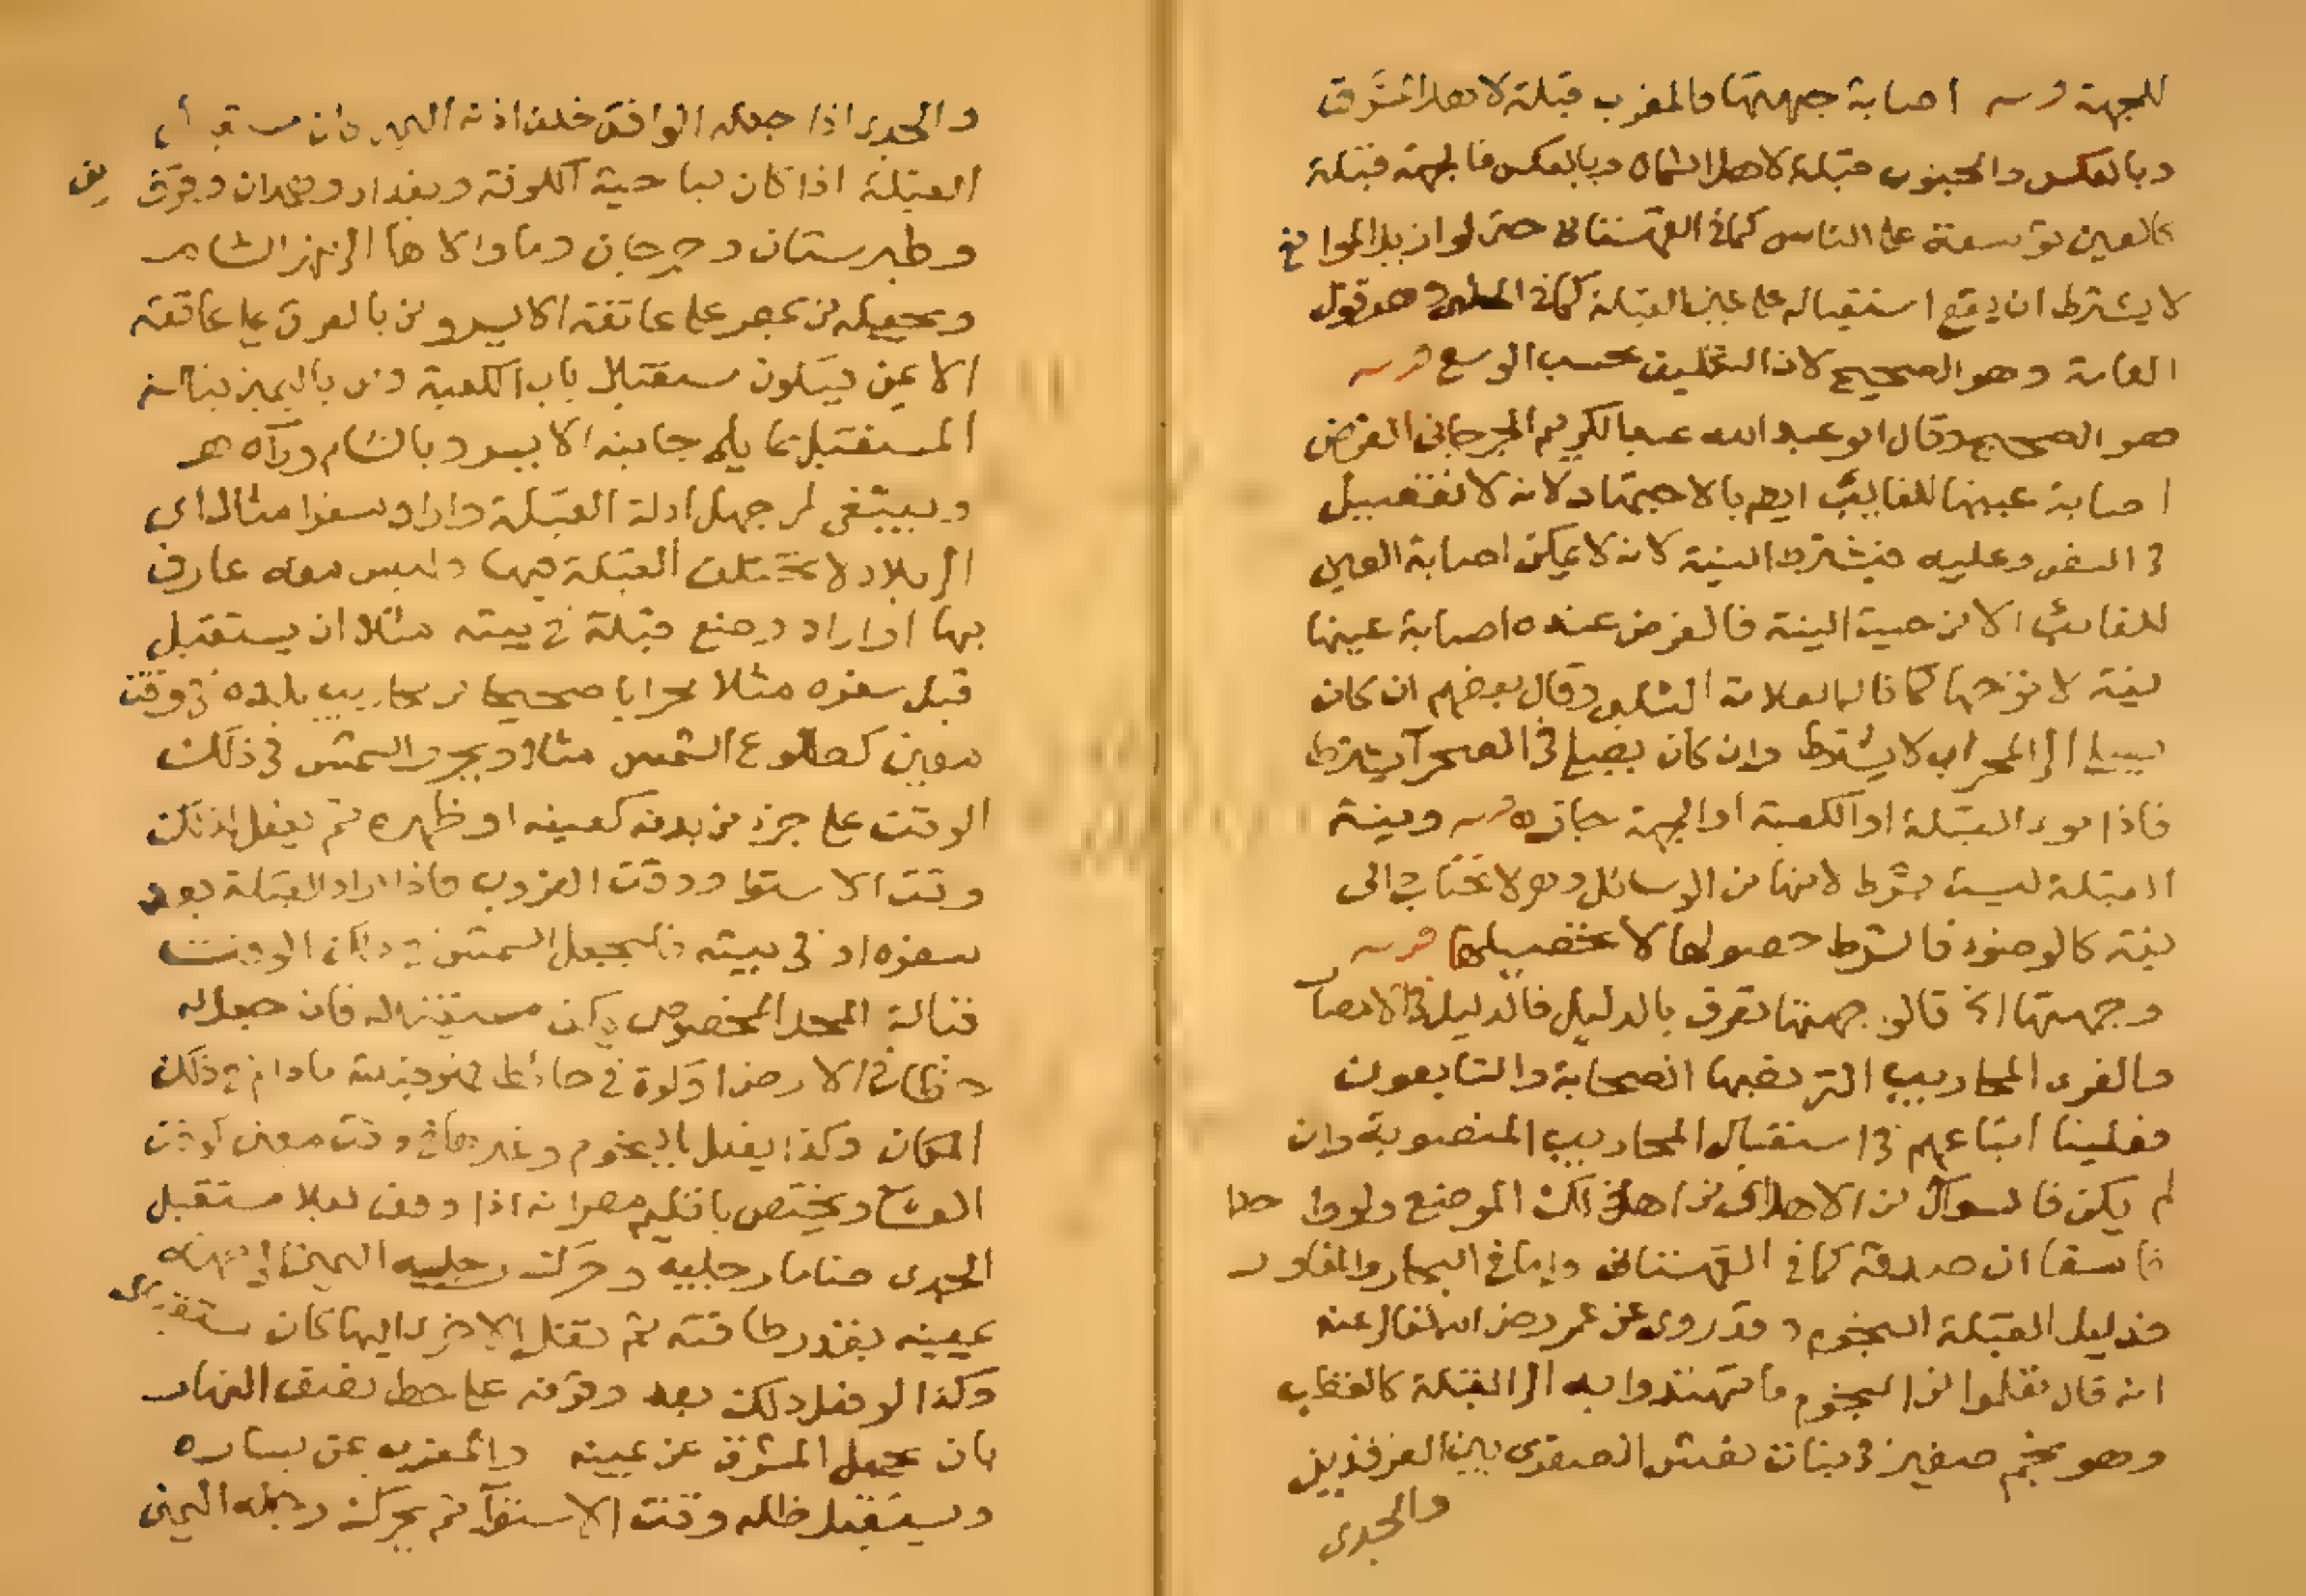 للجهة قوله اصابة جهتها فالمغرب قبلة لاهل المشرق
وبالعكس والجنوب قبلة لاهل الشمال وبالعكس فالجهة قبلة
كالعين توسعة على الناس كما في القهستاني حتى لو ازيل الموانع
لا يشترط ان يقع استقباله على عين القبلة كما في الحلبي وهو قول
العامة وهو الصحيح لان التكليف بحسب الوسع قوله
هو الصحيح وقال ابو عبد الله عبد الكريم الجرجاني الفرض
اصابة عينها للغائب ايضا بالاجتهاد لانه لا تفصيل
في النص وعليه فيشترط النية لانه لا يمكن اصابة العين
للغائب الا من حيث النية فالفرض عنده اصابة عينها
لنية لا توجها كما قاله العلامة الشلبي وقال بعضهم ان كان
يصلي الى المحراب لا يشترط وان كان يصلي في الصحرآ يشترط
فاذا نوى القبلة او الكعبة او الجهة جازه قوله ونية
القبلة ليست بشرط لانها من الوسائل وهي لا تحتاج الى
نية كالوضوء فالشرط حصولها لا تحصيلها قوله
وجهتها الخ قالوا جهتها تعرف بالدليل فالدليل في الامصار
والقرى المحاريب التي نصبها الصحابة والتابعون
فعلينا اتباعهم في استقبال المحاريب المنصوبة وان
لم يكن فالسوآل من الاهل اي من اهل ذلك الموضع ولو واحدا
فاسقا ان صدقه كما في القهستاني واما في البحار والمفاوز
فدليل القبلة النجوم وقد روى عن عمر رضي الله تعالى عنه
انه قال تعلموا من النجوم ما تهتدوا به الى القبلة كالقطب
وهو نجم صغير في بنات نعش الصغرى بين الفرقدين
والجدى
والجدى اذا جعله الواقف خلف اذنه اليمنى كان مستقبل
القبلة اذا كان بناحية الكوفة وبغداد وهمدان وقزوين
وطبرستان وجرجان وما والاها الى نهر الشاس
ويجعله من بمصر على عاتقه الايسر ومن بالعراق على عاتقه
الايمن فيكون مستقبل باب الكعبة ومن باليمن قبالة
المستقبل مما يلي جانبه الايسر وبالشام ورآه هر
وينبغي لمن جهل ادلة القبلة واراد سفرا مثلا اي
الى بلاد لا تختلف القبلة فيها وليس معه عارف
بها او اراد وضع قبلة في بيته مثلا ان يستقبل
قبل سفره مثلا محرابا صحيحا من محاريب بلده في وقت
معين كطلوع الشمس مثلا ويحرر الشمس في ذلك
الوقت على جزء من بدنه كعينه او ظهره ثم يفعل ذلك
وقت الاستوا ووقت الغروب فاذا اراد القبلة بعد
سفره او في بيته فليجعل الشمس في ذلك الوقت
قبالة المحل المخصوص يكن مستقبلا له فان جعل له
في الارض او كوة في حائط فهو قرينة مادام في ذلك
المكان وكذا يفعل بالنجوم وغيرها في وقت معين كوقت
العشآ ويختص باقليم مصر انه اذا وقف ليلا مستقبل
الجدى ضاما رجليه وحرك رجليه اليمنى الى جهة
يمينه بقدر طاقته ثم نقل الاخرى اليها كان مستقبلا
وكذا لو فعل ذلك بعد وقوفه على خط نصف النهار
بان يجعل المشرق عن يمينه والمغرب عن يساره
ويستقبل ظله وقت الاستوآ ثم يحرك رجله اليمنى